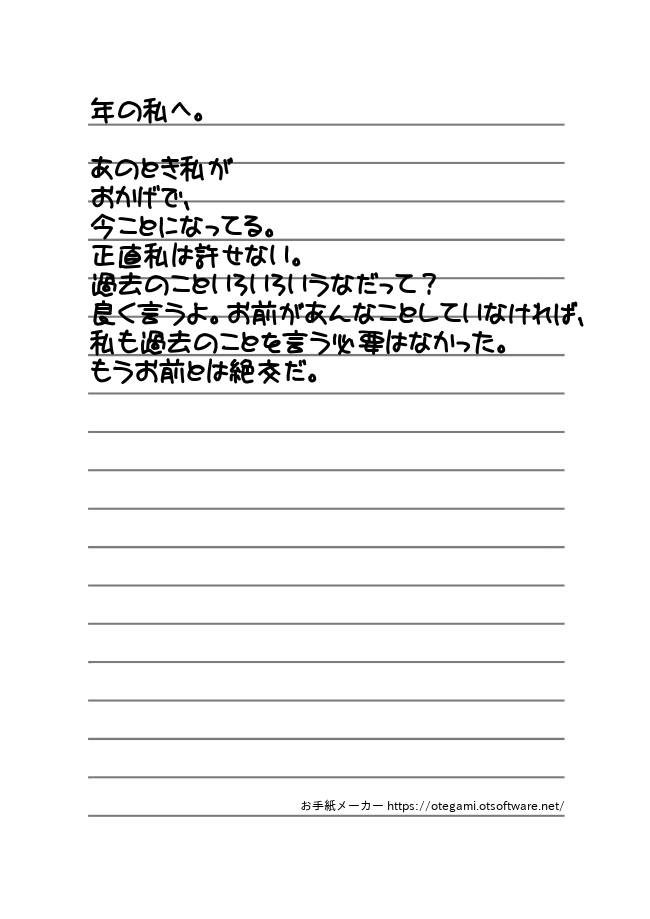 年の私へ。
あのとき私が
おかげで、
今ことになってる。
正直私は許せない。
過去のこといろいろいうなだって？
良く言うよ。お前があんなことしていなければ、
私も過去のことを言う必要はなかった。
もうお前とは絶交だ。
お手紙メーカー https://otegami.otsoftware.net/